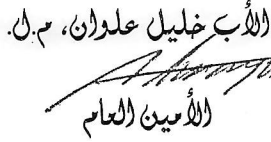 الأب خليل علوان، م.ل.
الأمين العام